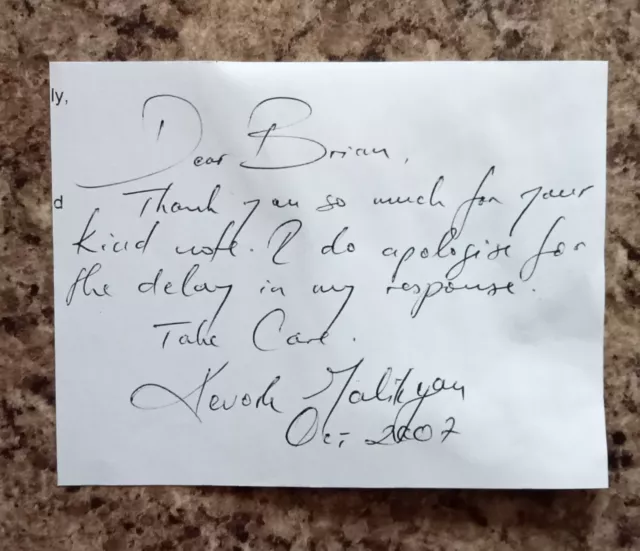 ly,
Dear Brian,
d
Thank you so much for your
kind note. I do apologise for
the delay in my response.
Take Care.
Kevork Malikyan
Oct 2007